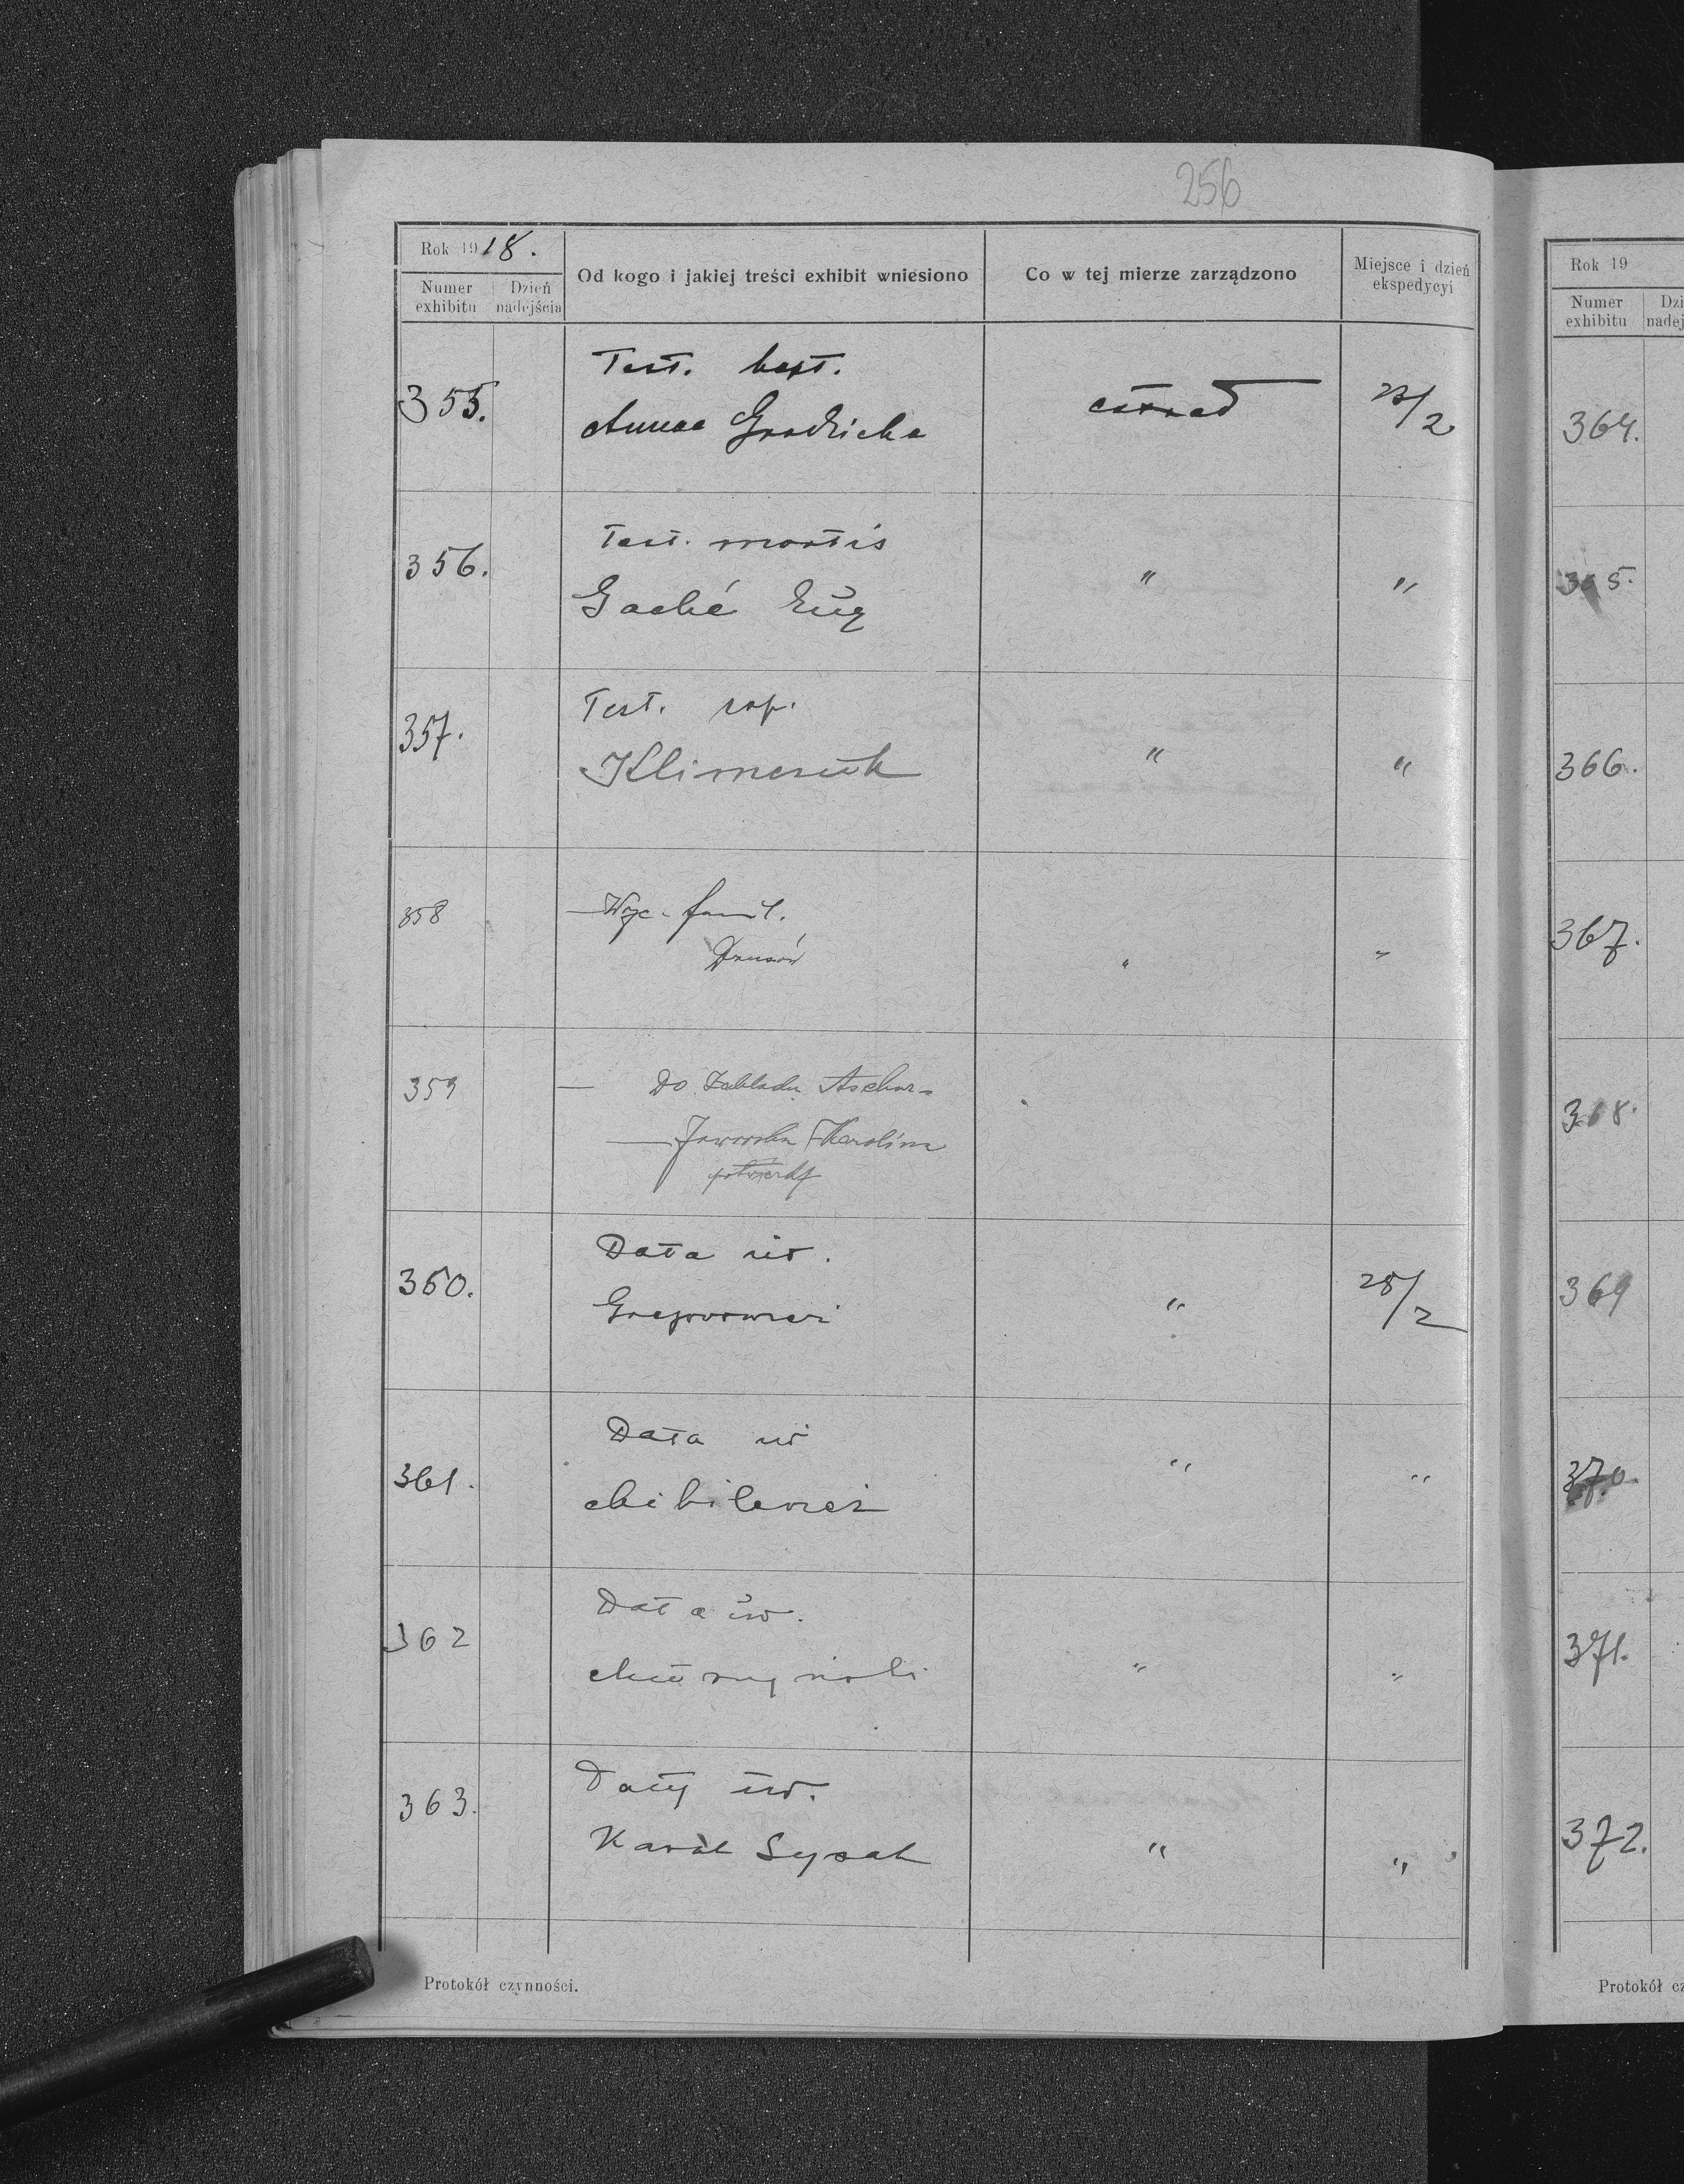 256
Rok 1918.
Numer exhibitu
Dzień nadejścia
Od kogo i jakiej treści exhibit wniesiono
Co w tej mierze zarządzono
Miejsce i dzień ekspedycyi
355.
Test. bapt.
Anna Grodzicka
23/2
356.
Test. mortis
Gaché Eug
"
"
357.
Test. cop.
Klimczuk
"
"
358
fami.
"
"
359
— Do Zakładu
Jaworska Karolina
360.
Data ur.
"
28/2
361.
Data ur
"
"
362
Data ur.
"
"
363.
Daty ur.
Karol Sysak
"
"
Protokół czynności.
Rok 19
Numer exhibitu
364.
365.
366.
367.
368.
369
370.
371.
372.
Protokół